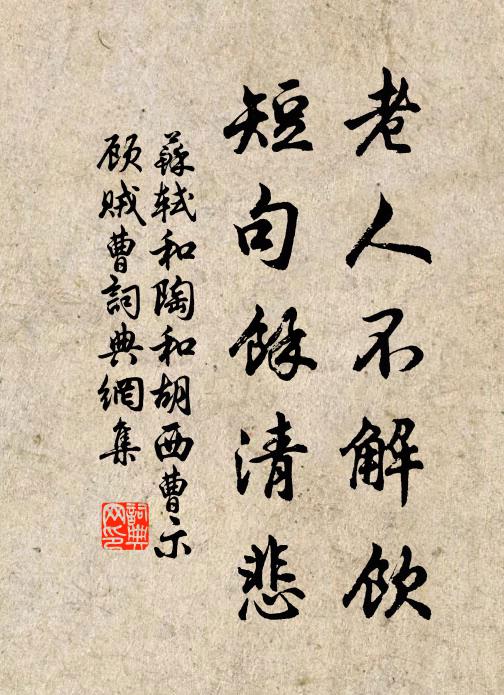 老人不解飲
短句餘清悲
蘇軾和陶和胡西曹示
顾贼曹詞典網集
詞典
网印